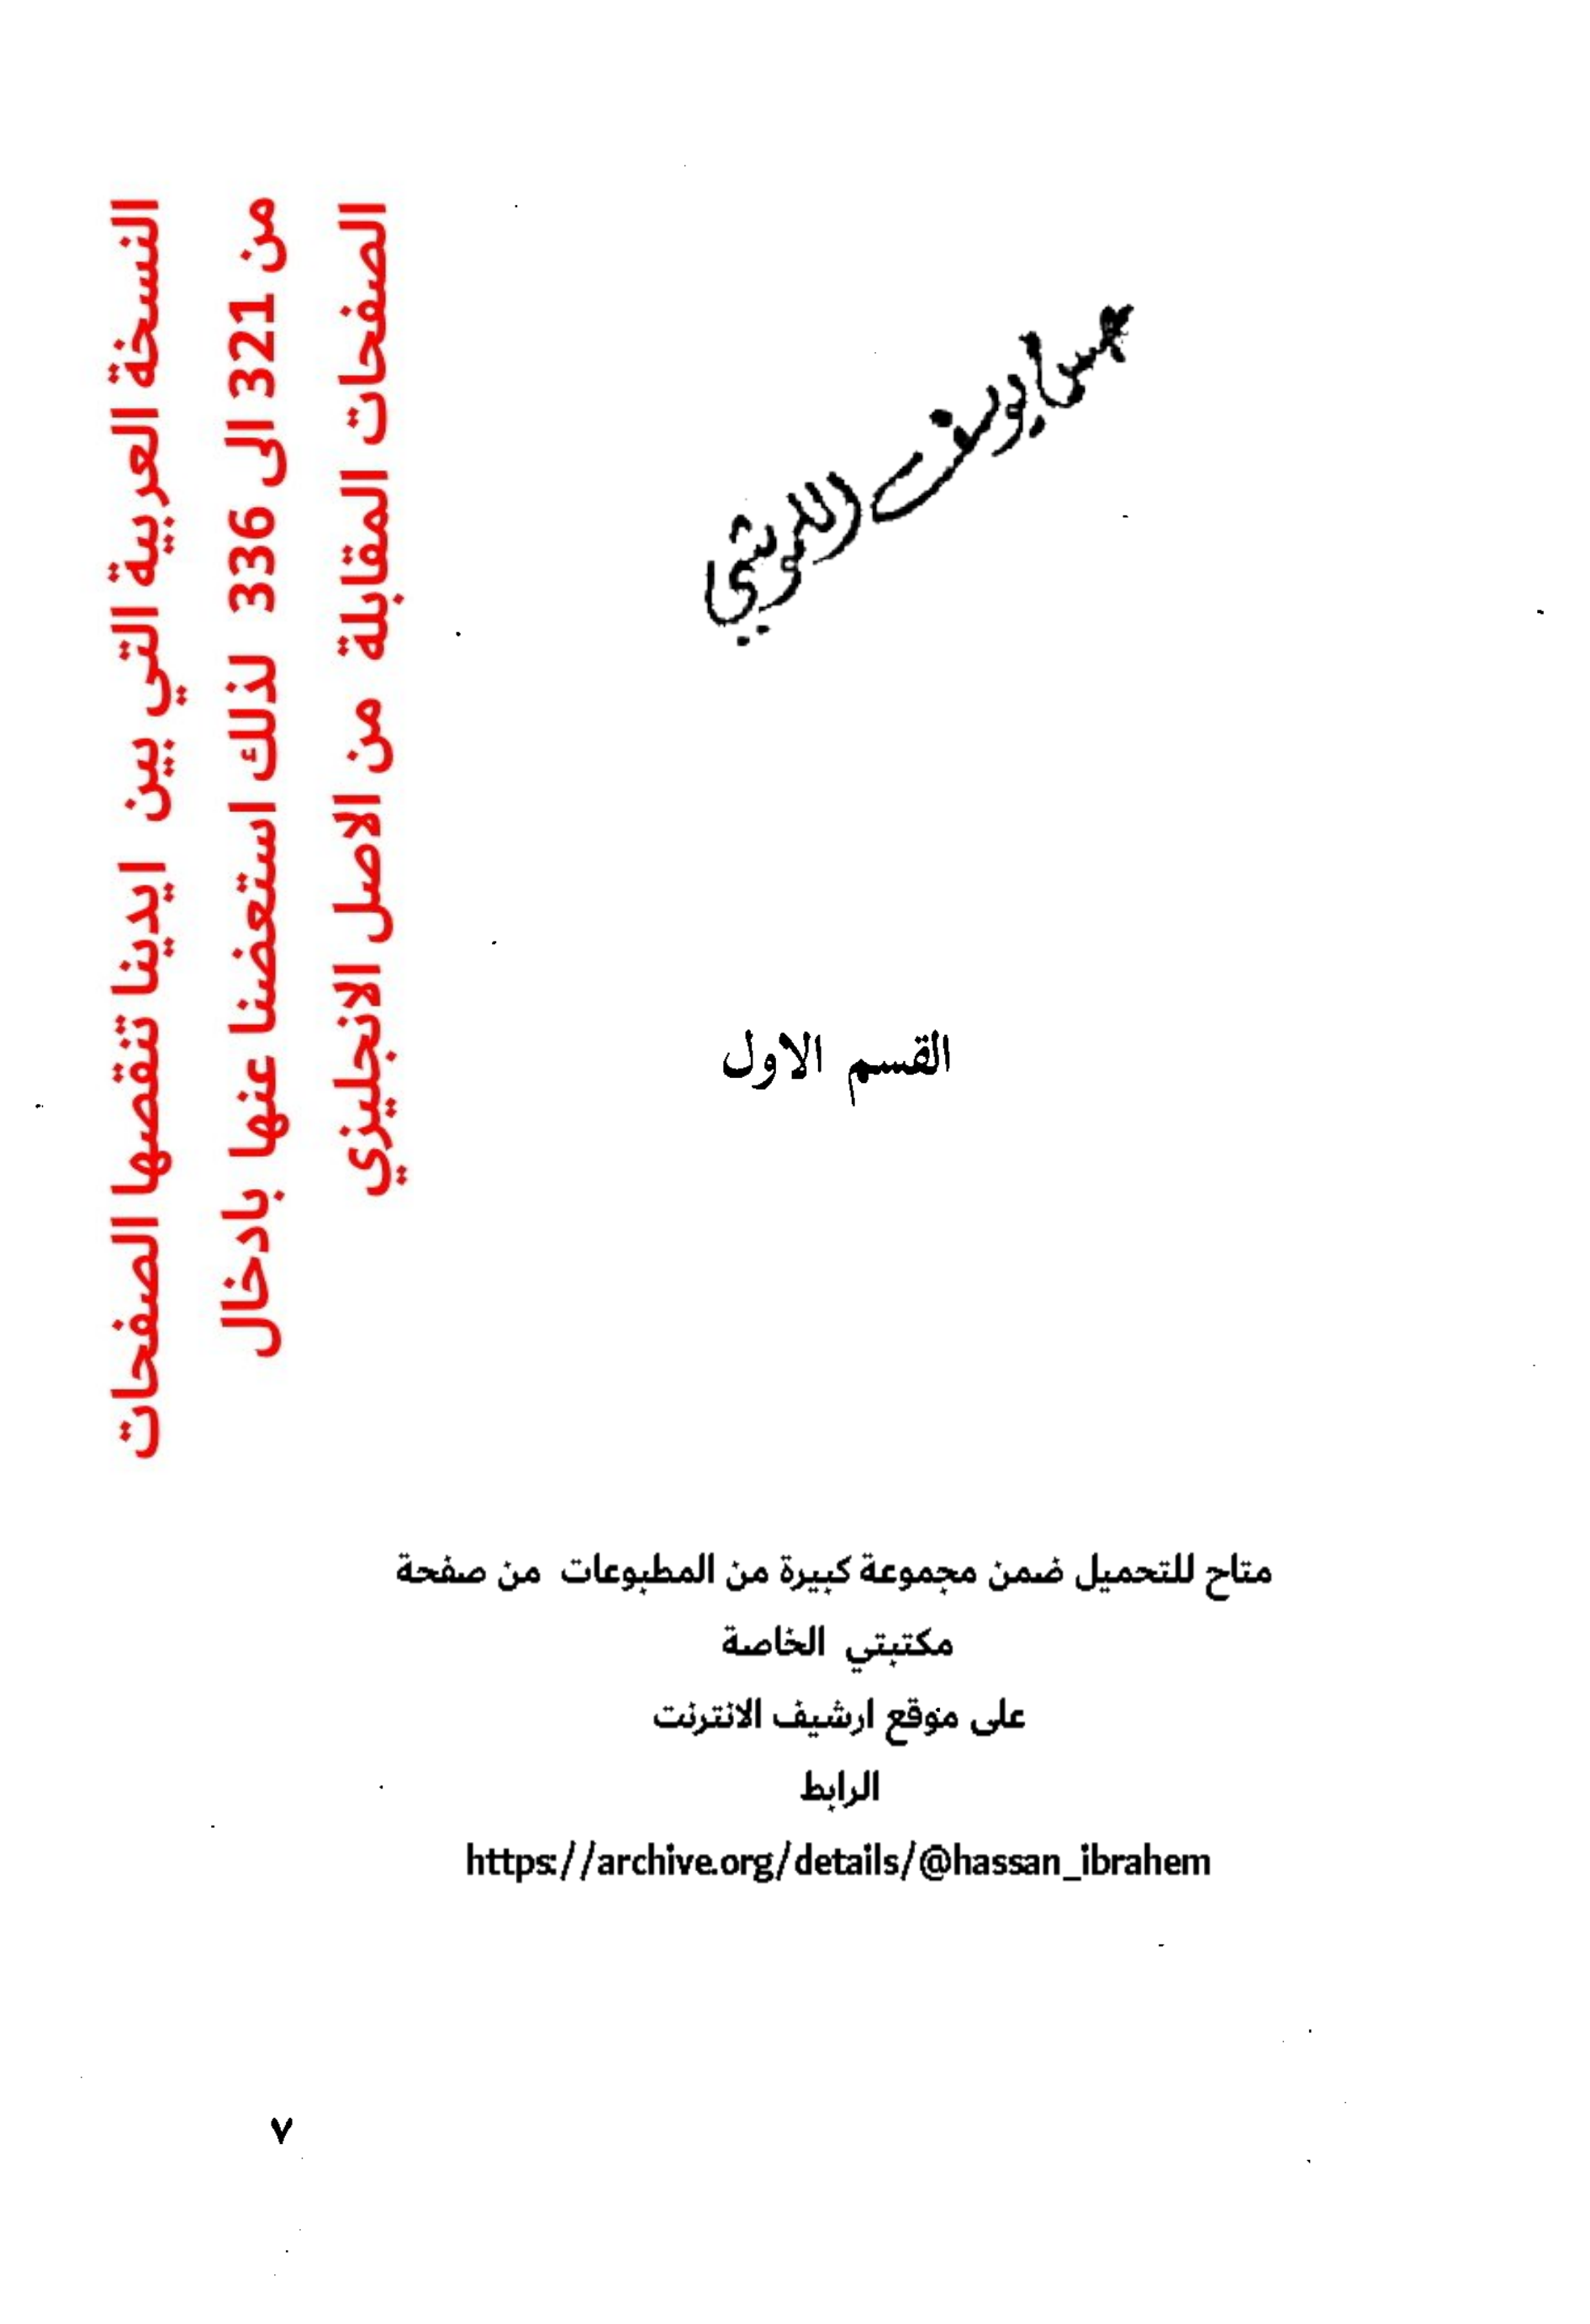 النسخة العربية التي بين ايدينا تنقصها الصفحات
من 321 الى 336 لذلك استعضنا عنها بادخال
الصفحات المقابلة من الاصل الانجليزي
يوسف
القسم الاول
متاح للتحميل ضمن مجموعة كبيرة من المطبوعات من صفحة
مكتبتي الخاصة
على موقع ارشيف الانترنت
الرابط
https://archive.org/details/@hassan_ibrahem
٧